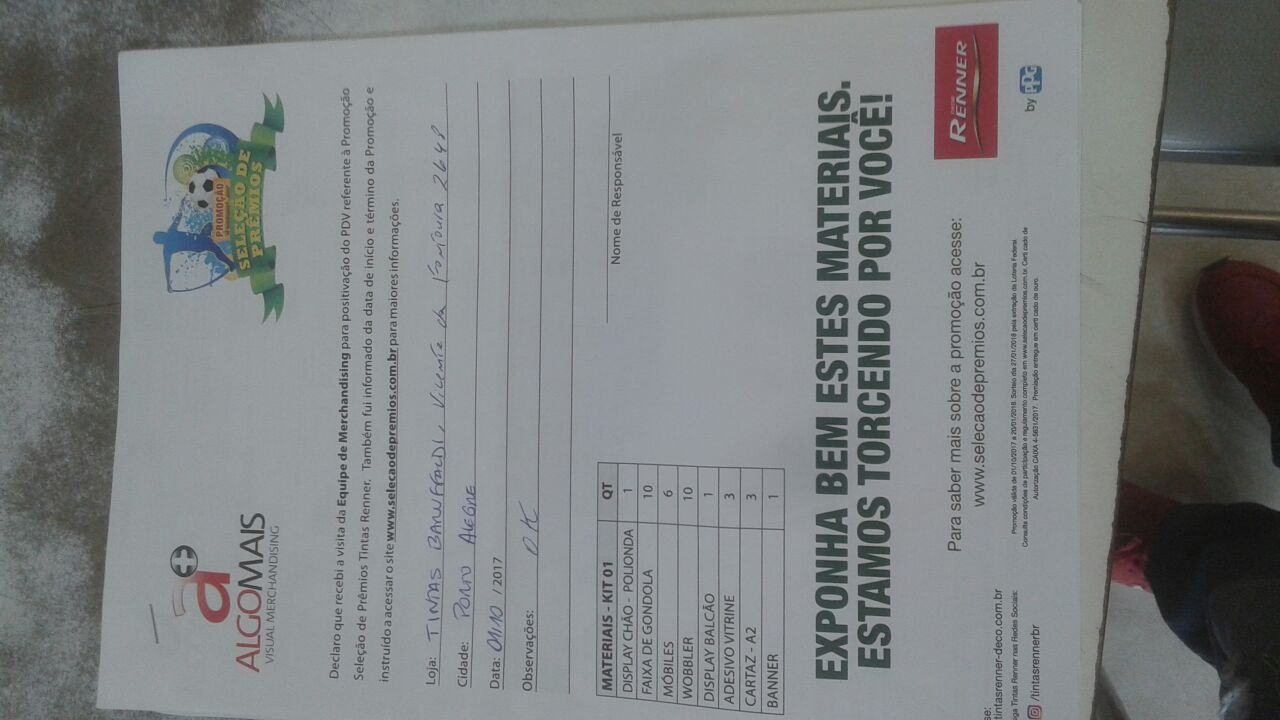 a+
ALGOMAIS
VISUAL MERCHANDISING
PROMOÇÃO
SELEÇÃO DE
PRÊMIOS
Declaro que recebi a visita da Equipe de Merchandising para positivação do PDV referente à Promoção
Seleção de Prêmios Tintas Renner. Também fui informado da data de início e término da Promoção e
instruído a acessar o site www.selecaodepremios.com.br para maiores informações.
Loja: TINTAS BARUFFALDI, Vicente da Fontoura 2648
Cidade: PORTO ALEGRE
Data: 01/10/2017
Observações: OK
Nome de Responsável
MATERIAIS - KIT 01 QT
DISPLAY CHÃO - POLIONDA 1
FAIXA DE GONDOLA 10
MÓBILES 6
WOBBLER 10
DISPLAY BALCÃO 1
ADESIVO VITRINE 3
CARTAZ - A2 3
BANNER 1
EXPONHA BEM ESTES MATERIAIS.
ESTAMOS TORCENDO POR VOCÊ!
Para saber mais sobre a promoção acesse:
www.selecaodepremios.com.br
RENNER
by PPG
Promoção válida de 01/10/2017 à 20/01/2018. Sorteio dia 27/01/2018 pela extração da Loteria Federal.
Consulta condições de participação e regulamento completo em www.selecaodepremios.com.br. Certi cado de
Autorização CAIXA 4-5631/2017. Premiação entregue em certi cado de ouro.
se:
tintasrenner-deco.com.br
iga Tintas Renner nas Redes Sociais:
/tintasrennerbr